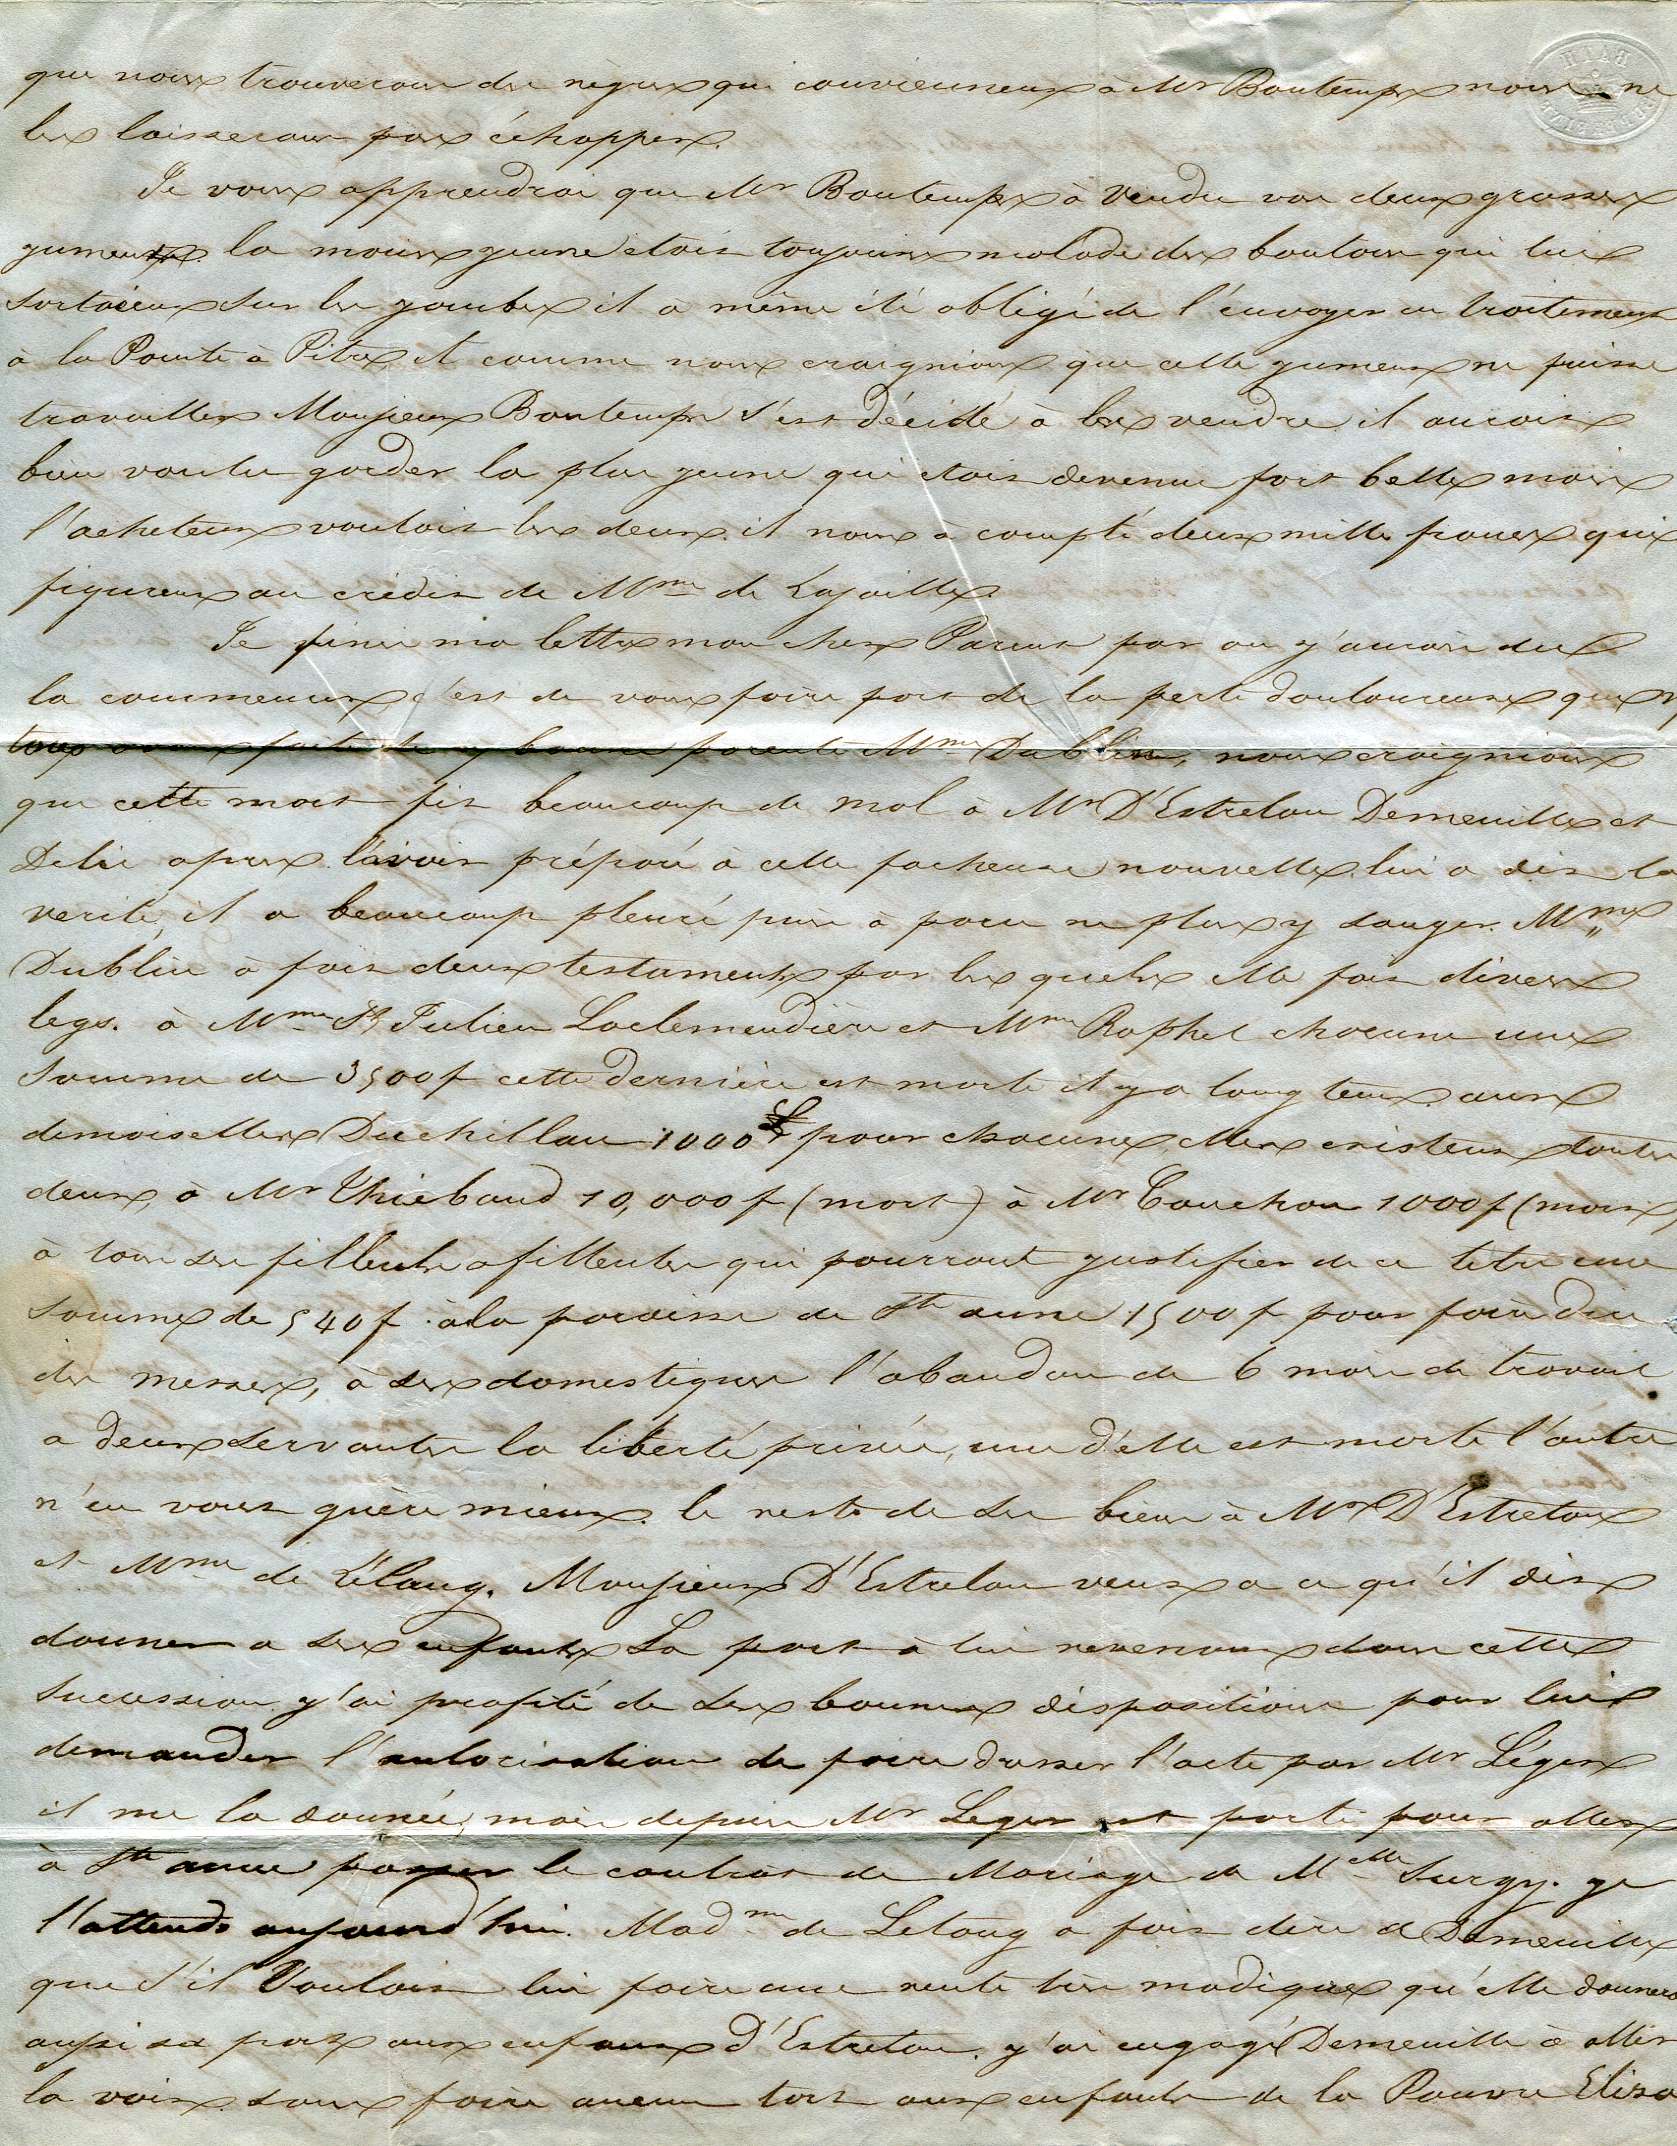 que nous trouverons des nègres qui conviennent à Mr Bontemps nous ne
les laisserons pas échapper.
Je vous apprendrai que Mr Bontemps à vendu vos deux grosses
jumens la moins jeune étois toujours malade des boutons qui lui
sortoient sur les jambes il a même été obligé de l'envoyer en traitement
à la Pointe à Pitre, et comme nous craignions que cette jument ne puisse
travailler Monsieur Bontemps s'est décidé à les vendre il aurois
bien voulu garder la plus jeune qui étois devenue fort belle mais
l'acheteur voulois les deux. il nous à compté deux mille francs qui
figurent au crédit de Mme de Lajaille
Je finis ma lettre mon cher Parent par ou j'aurois du
la commencer c'est de vous faire part de la perte douloureuse que n
tous avons faite de bonne parente Mme Dublin, nous craignions
que cette mort fit beaucoup de mal à Mr D'Estrelan Demeuille et
Délie apres l'avoir préparé à cette facheuse nouvelle lui a dit la
verité, il a beaucoup pleuré puis à paru ne plus y songer. Mme
Dublin à fait deux testaments par les quels elle fait divers
legs. à Mme St Julien Laclemendière et Mme Raphel chacune une
somme de 3500f cette dernière est morte il y a long tems aux
demoiselles Duchillau 1000 pour chacune, elles existent toutes
deux, à Mr Thiebaud 10,000f (mort) à Mr Couchou 1000f (mort)
à tous ses filleuls & filleules qui pourront justifier de ce titre une
somme de 540f. à la paroisse de Ste anne 1500f pour faire dire
des messes, à ses domestiques l'abandon de 6 mois de travail
a deux servantes la liberté privée, une d'elle est morte l'autre
n'en vaut guère mieux. le reste de ses biens à Mr D'Estrelan
et Mme de L'élang. Monsieur D'Estrelan veut a ce qu'il dit
donner a ses enfants La part à lui revenant dans cette
sucession j'ai profité de ses bonnes dispositions pour lui
demander l'autorisation de faire dresser l'acte par Mr Léger
il me la donnée, mais depuis Mr Leger est parti pour aller
à Ste anne passer le contrat de Mariage de Melle Surgy. je
l'attends aujourd'hui. Madme de Letang a fait dire a Demeuille
que s'il Voulois lui faire une rente très modique qu'elle donnera
aussi sa part aux enfans d'Estrelan. j'ai engagé Demeuille à aller
la voir. sans faire aucun tort aux enfants de la Pauvre Eliza